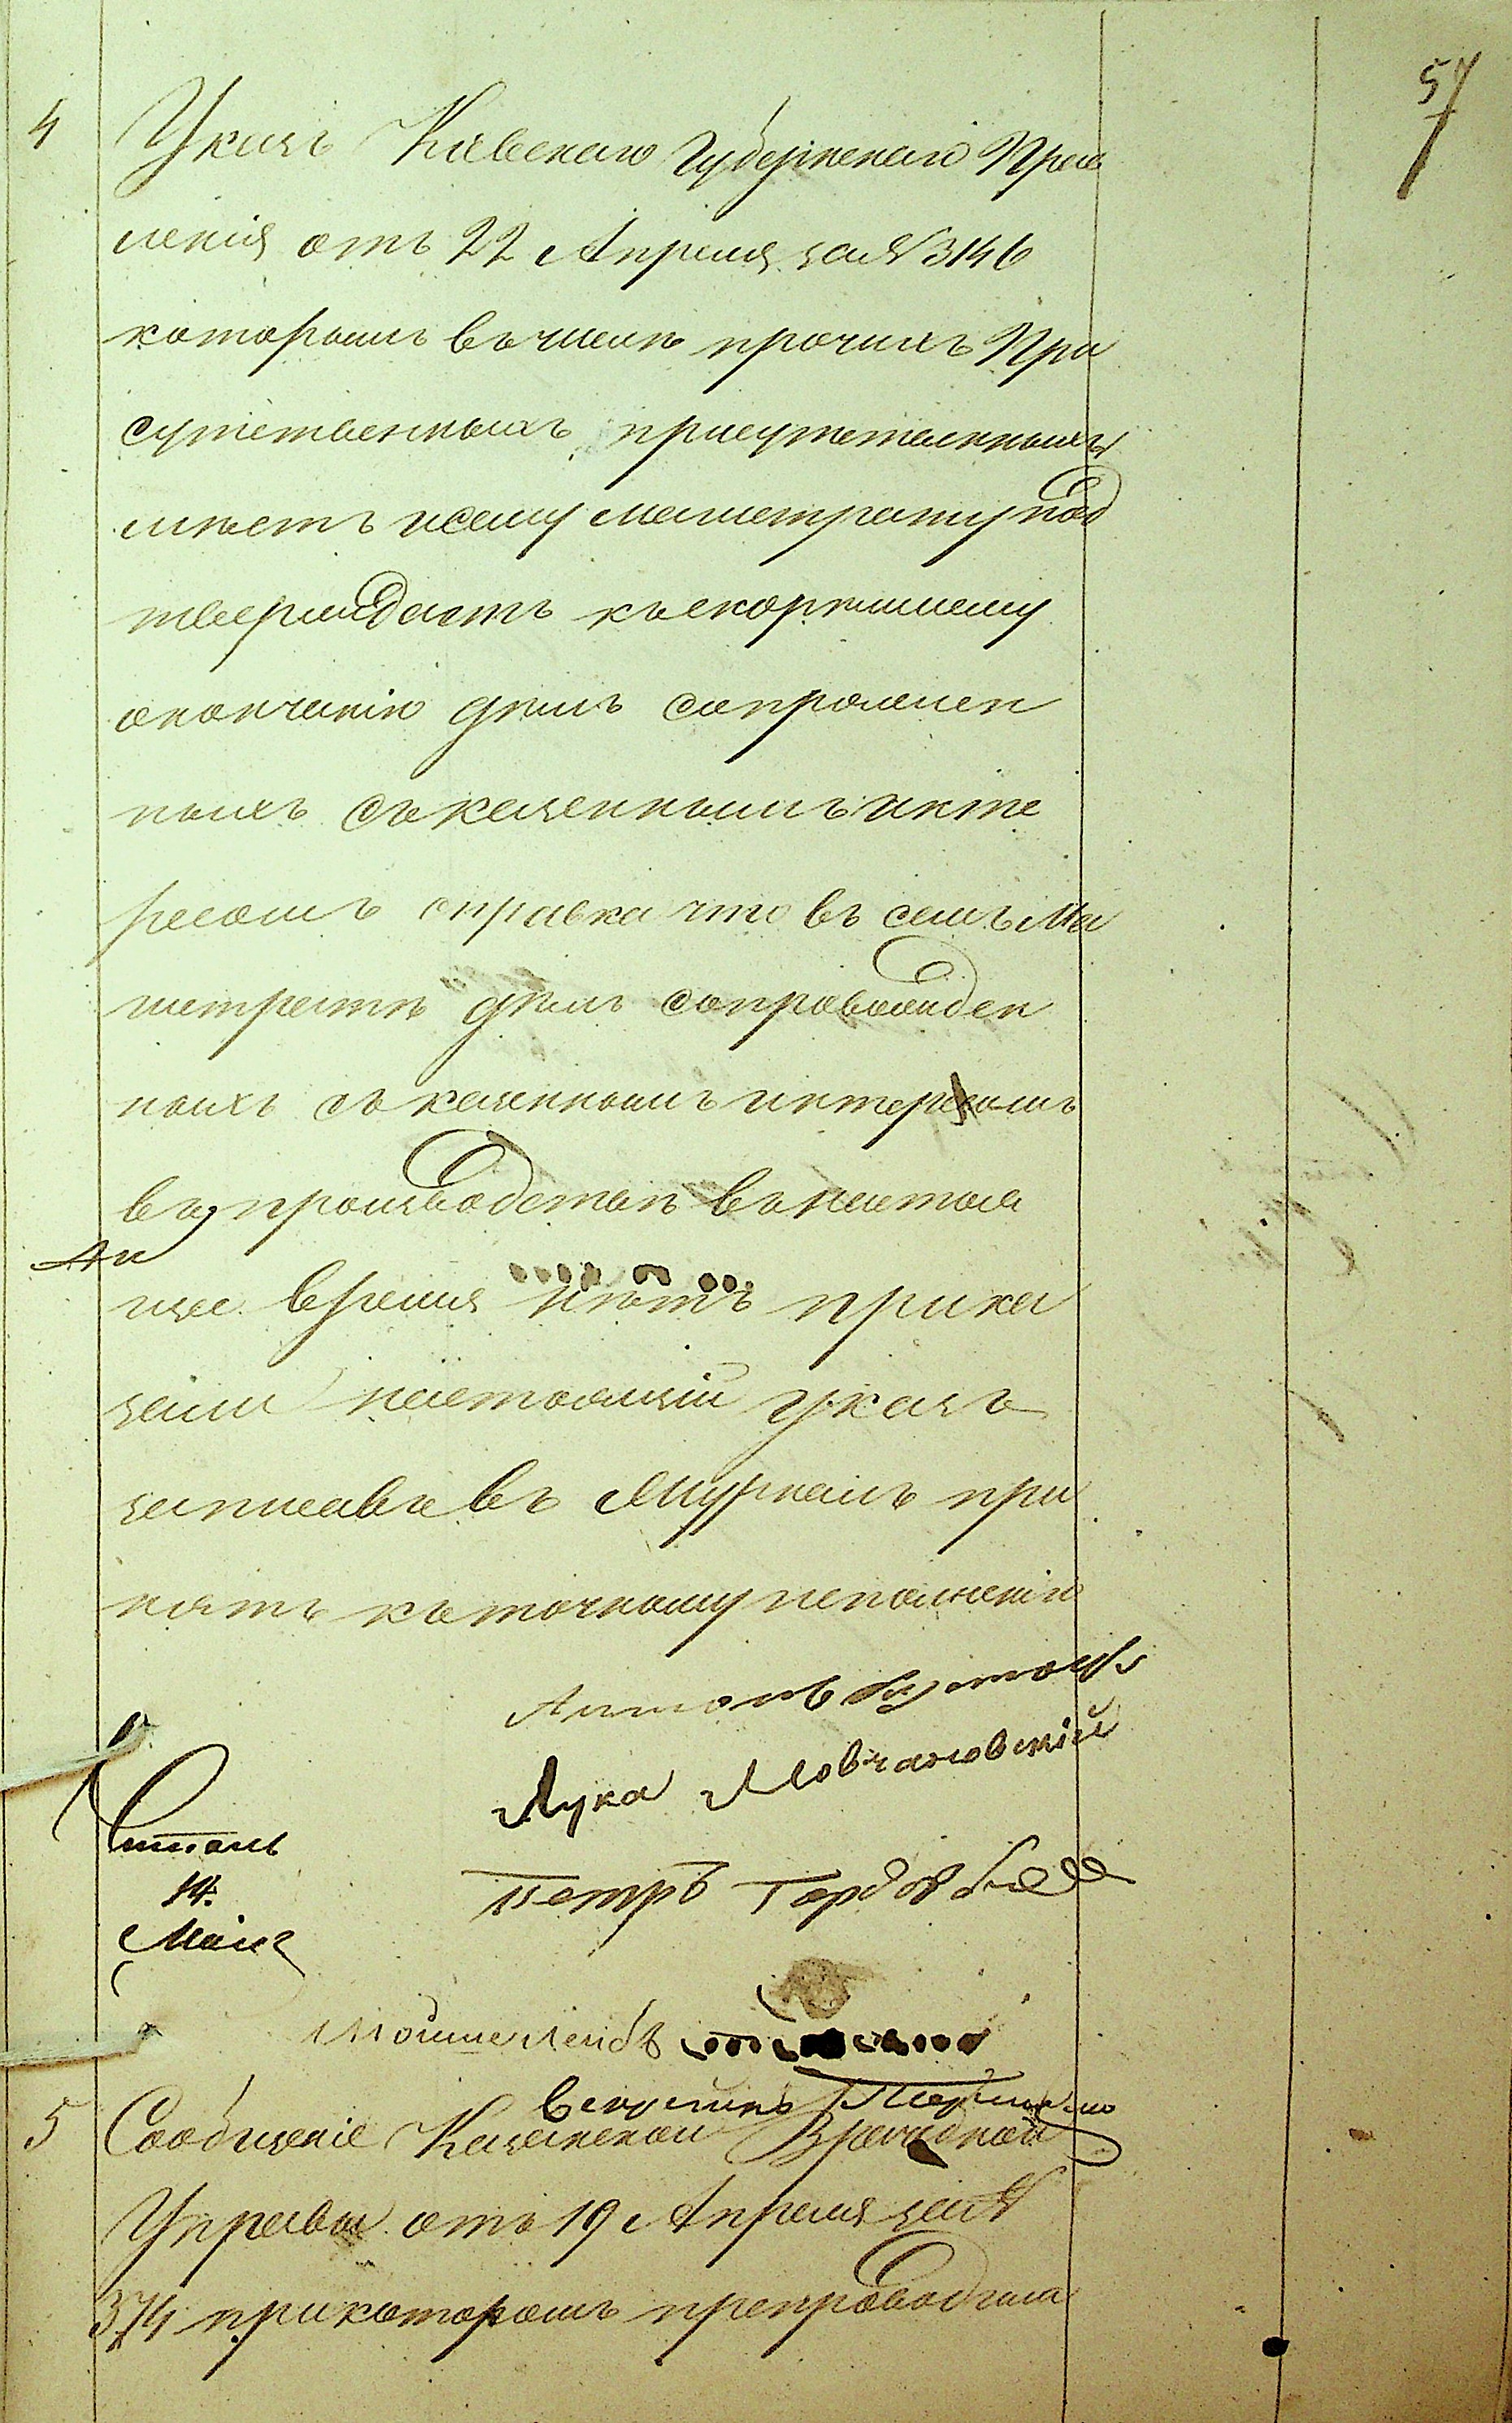 57
4 Указъ Кіевскаго Губернскаго Прав
ленія отъ 22 Апреля за № 3146
которымъ въ числе прочихъ При
сутственныхъ присутственныхъ
местъ и сему магистрату под
тверждаетъ къ скорейшему
окончанію делъ сопряжен
ныхъ съ казеннымъ инте
ресомъ справка что въ семъ Ма
гистрате делъ сопровожден
ныхъ съ казеннымъ интересомъ
въ производстве въ настоя
щее время нетъ прика
зали настоящій указъ
записавъ въ Журналъ при
нять къ точному исполненію
Антонъ
Лука Мовчановскій
Петръ
Читалъ
14.
Маія
Мошке Лейбъ
5 Сообщеніе Казанской Врачебной
Управы отъ 19 Апреля за №
374 при которомъ препроводила